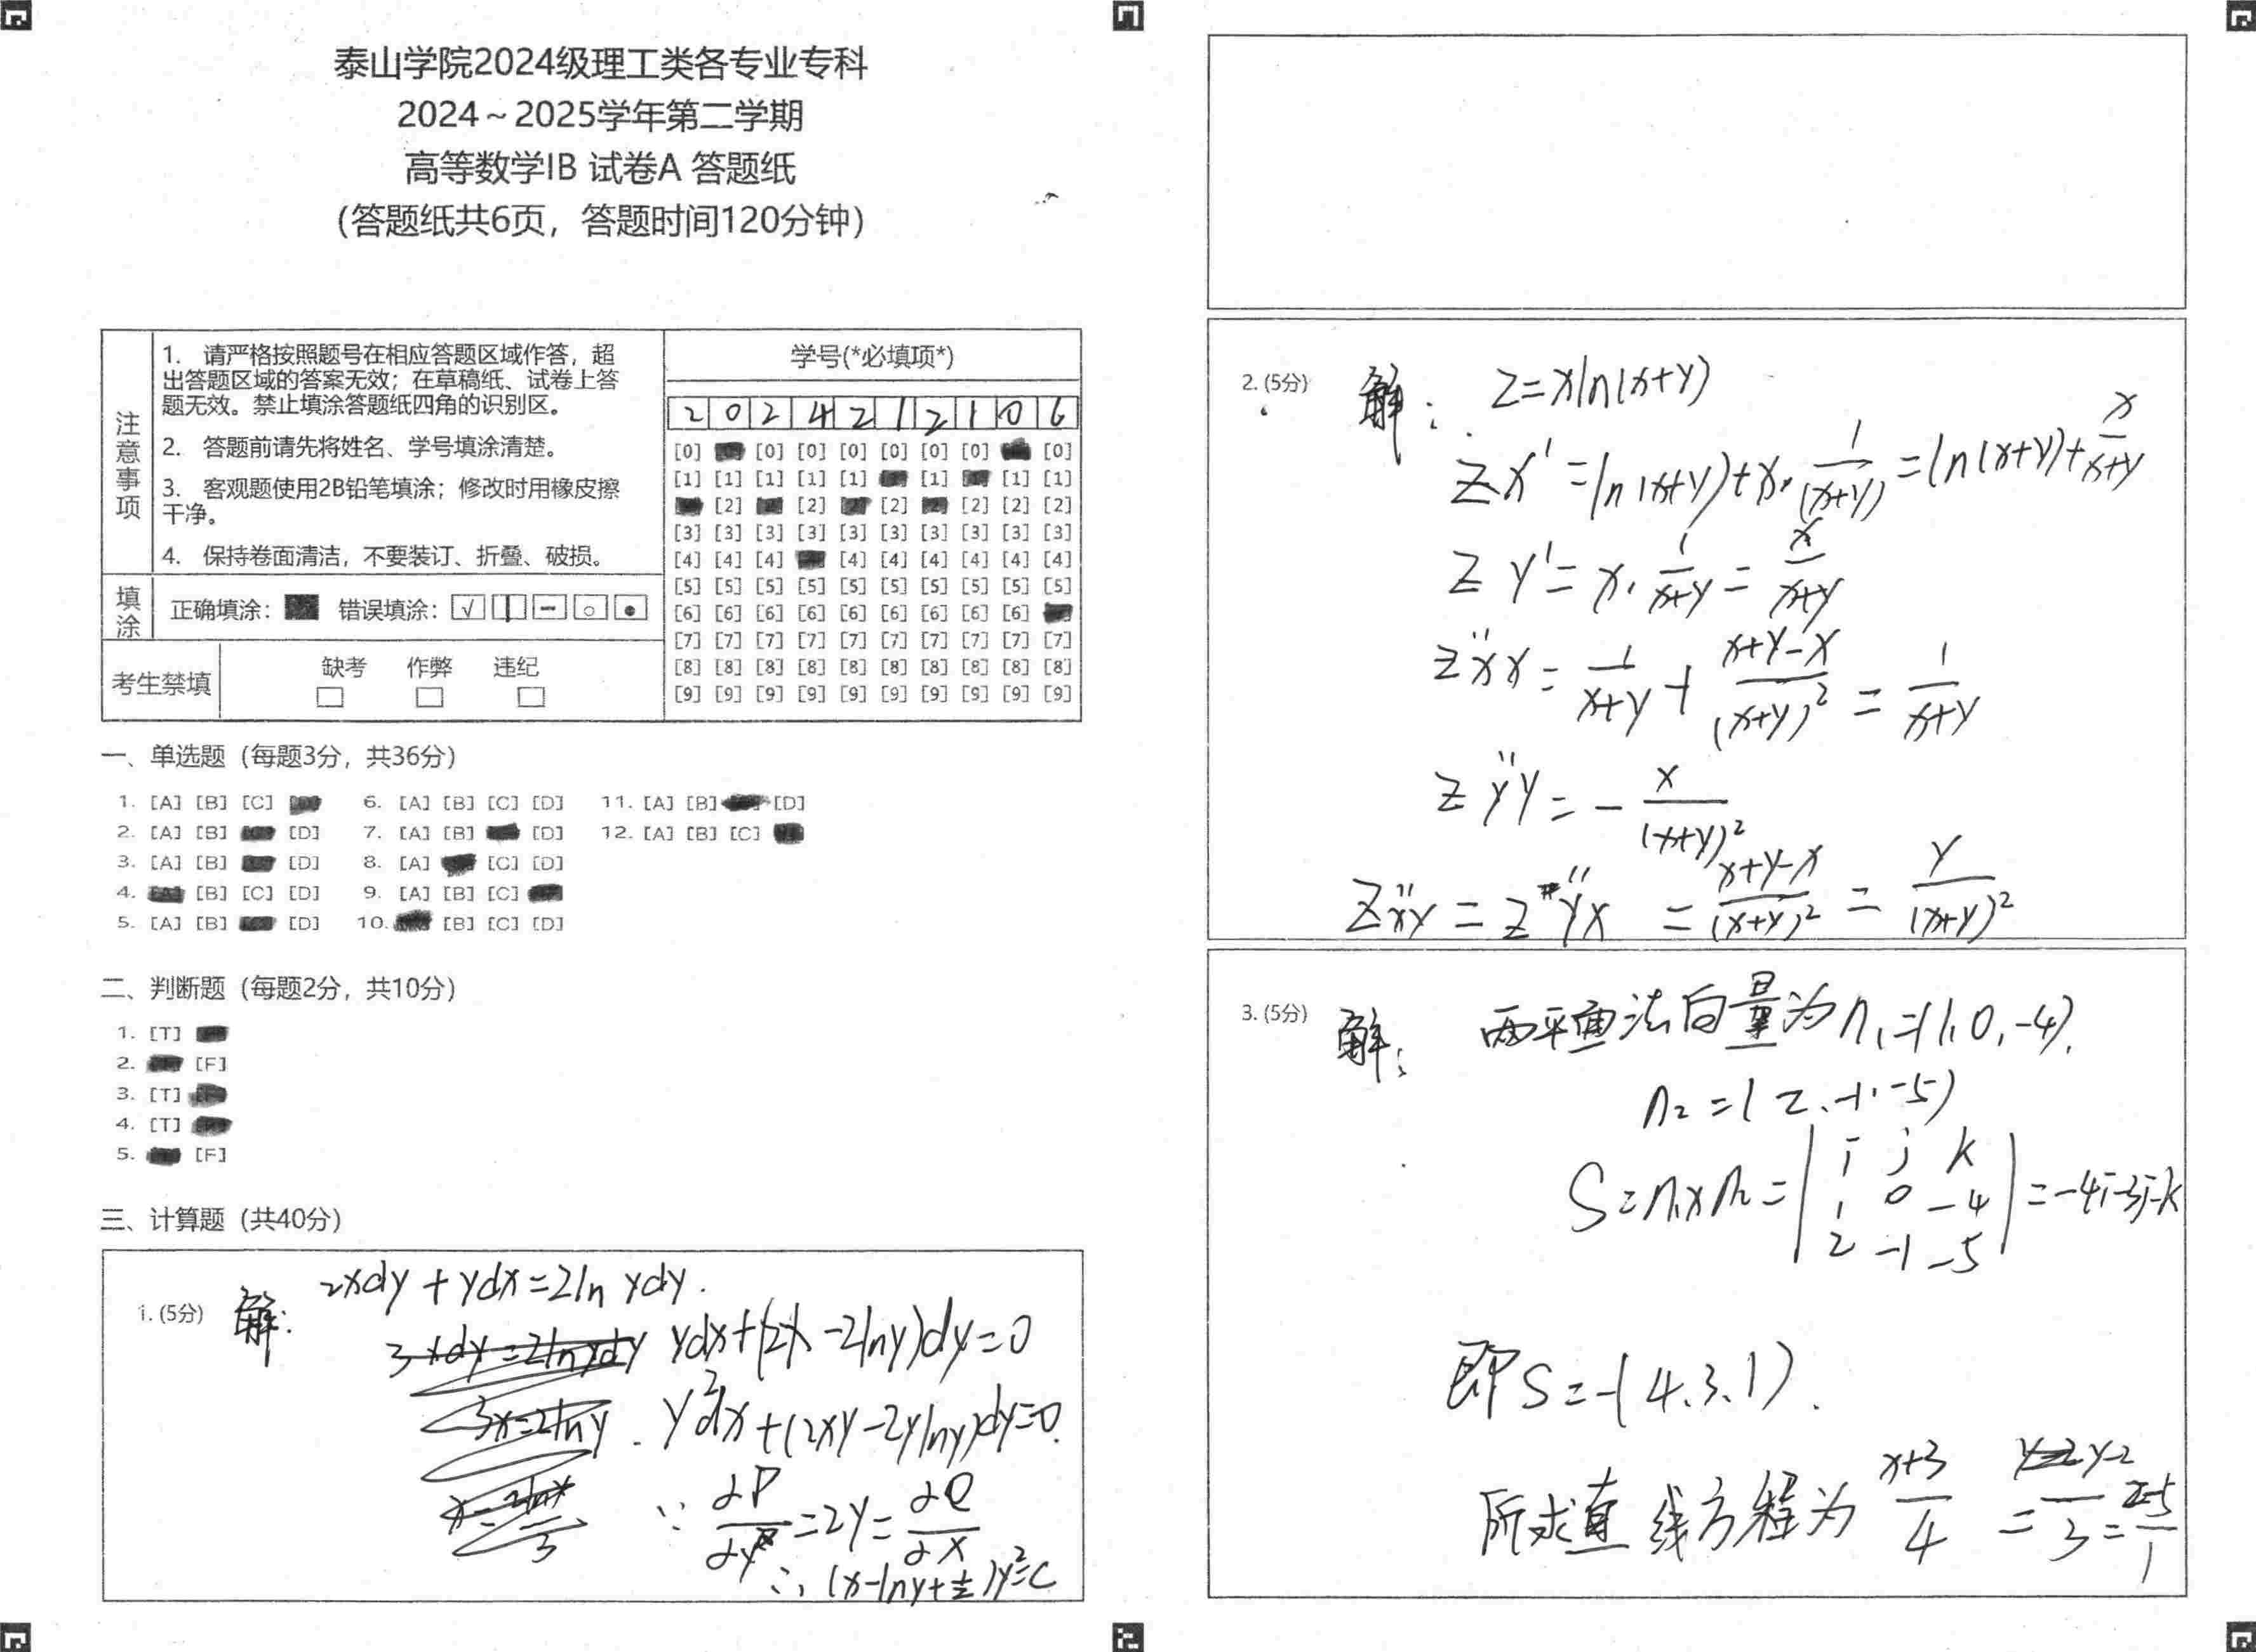 泰山学院2024级理工类各专业专科
2024～2025学年第二学期
高等数学IB 试卷A 答题纸
（答题纸共6页，答题时间120分钟）
注意事项
1. 请严格按照题号在相应答题区域作答，超
出答题区域的答案无效；在草稿纸、试卷上答
题无效。禁止填涂答题纸四角的识别区。
2. 答题前请先将姓名、学号填涂清楚。
3. 客观题使用2B铅笔填涂；修改时用橡皮擦
干净。
4. 保持卷面清洁，不要装订、折叠、破损。
填涂
正确填涂： 错误填涂：
考生禁填
缺考 作弊 违纪
学号(*必填项*)
2 0 2 4 2 1 2 1 0 6
[0] [0] [0] [0] [0] [0] [0] [0]
[1] [1] [1] [1] [1] [1] [1] [1]
[2] [2] [2] [2] [2] [2]
[3] [3] [3] [3] [3] [3] [3] [3] [3] [3]
[4] [4] [4] [4] [4] [4] [4] [4] [4]
[5] [5] [5] [5] [5] [5] [5] [5] [5] [5]
[6] [6] [6] [6] [6] [6] [6] [6] [6]
[7] [7] [7] [7] [7] [7] [7] [7] [7] [7]
[8] [8] [8] [8] [8] [8] [8] [8] [8] [8]
[9] [9] [9] [9] [9] [9] [9] [9] [9] [9]
一、单选题（每题3分，共36分）
1. [A] [B] [C] 6. [A] [B] [C] [D] 11. [A] [B] [D]
2. [A] [B] [D] 7. [A] [B] [D] 12. [A] [B] [C]
3. [A] [B] [D] 8. [A] [C] [D]
4. [B] [C] [D] 9. [A] [B] [C]
5. [A] [B] [D] 10. [B] [C] [D]
二、判断题（每题2分，共10分）
1. [T]
2. [F]
3. [T]
4. [T]
5. [F]
三、计算题（共40分）
1. (5分) 解: 2xdy+ydx=2ln ydy.
ydx+(2x-2lny)dy=0
y²dx+(2xy-2ylny)dy=0.
∵ ∂P/∂y=2y=∂Q/∂x
∴ (x-lny+1/2)y²=C
2. (5分) 解: z=xln(x+y)
zx'=ln(x+y)+x·1/(x+y)=ln(x+y)+x/(x+y)
zy'=x·1/(x+y)=x/(x+y)
z''xx=1/(x+y)+(x+y-x)/(x+y)²=1/(x+y)
z''yy=-x/(x+y)²
z''xy=z''yx=(x+y-x)/(x+y)²=y/(x+y)²
3. (5分) 解: 两平面法向量为n₁=(1,0,-4).
n₂=(2,-1,-5)
S=n₁×n₂=|i j k
1 0 -4
2 -1 -5|=-4i-3j-k
即S=-(4,3,1).
所求直线方程为 (x+3)/4=(y-2)/3=(z-5)/1